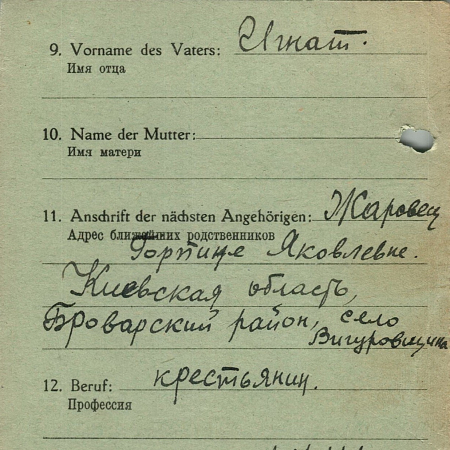 9. Vorname des Vaters: Игнат.
Имя отца
10. Name der Mutter:
Имя матери
11. Anschrift der nächsten Angehörigen: Жаровец
Адрес ближайших родственников
Горпине Яковлевне.
Киевская область,
Броварский район, село
Вигуровщина
12. Beruf: крестьянин.
Профессия